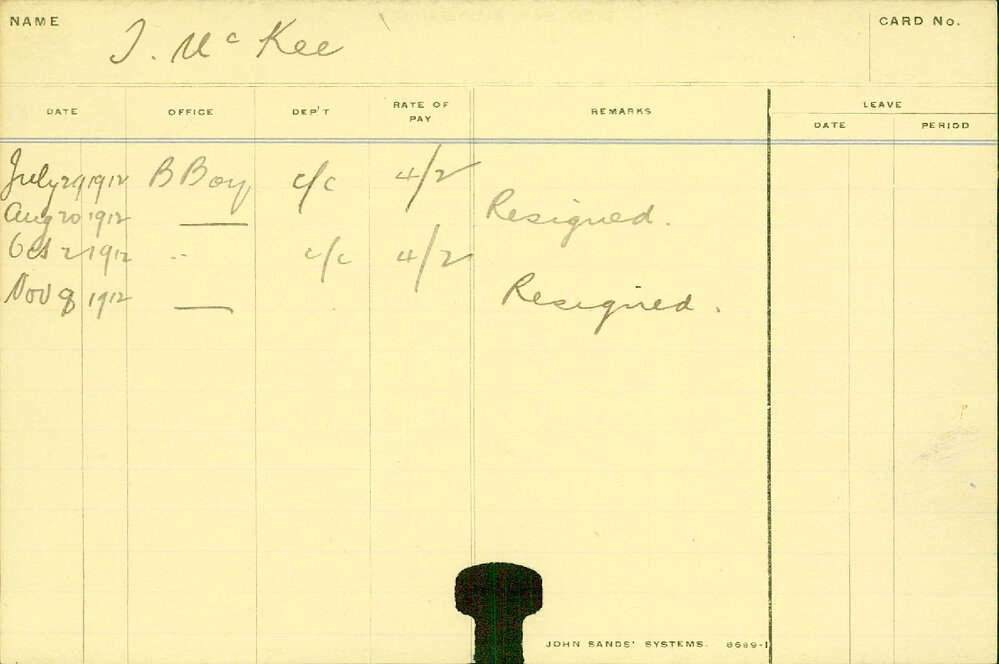 NAME J. McKee CARD No.
DATE OFFICE DEP'T RATE OF PAY REMARKS LEAVE
DATE PERIOD
July 29 1912 B Boy c/c 4/2
Aug 20 1912 — Resigned.
Oct 2 1912 " c/c 4/2
Nov 8 1912 — Resigned.
JOHN SANDS' SYSTEMS. 8689-1